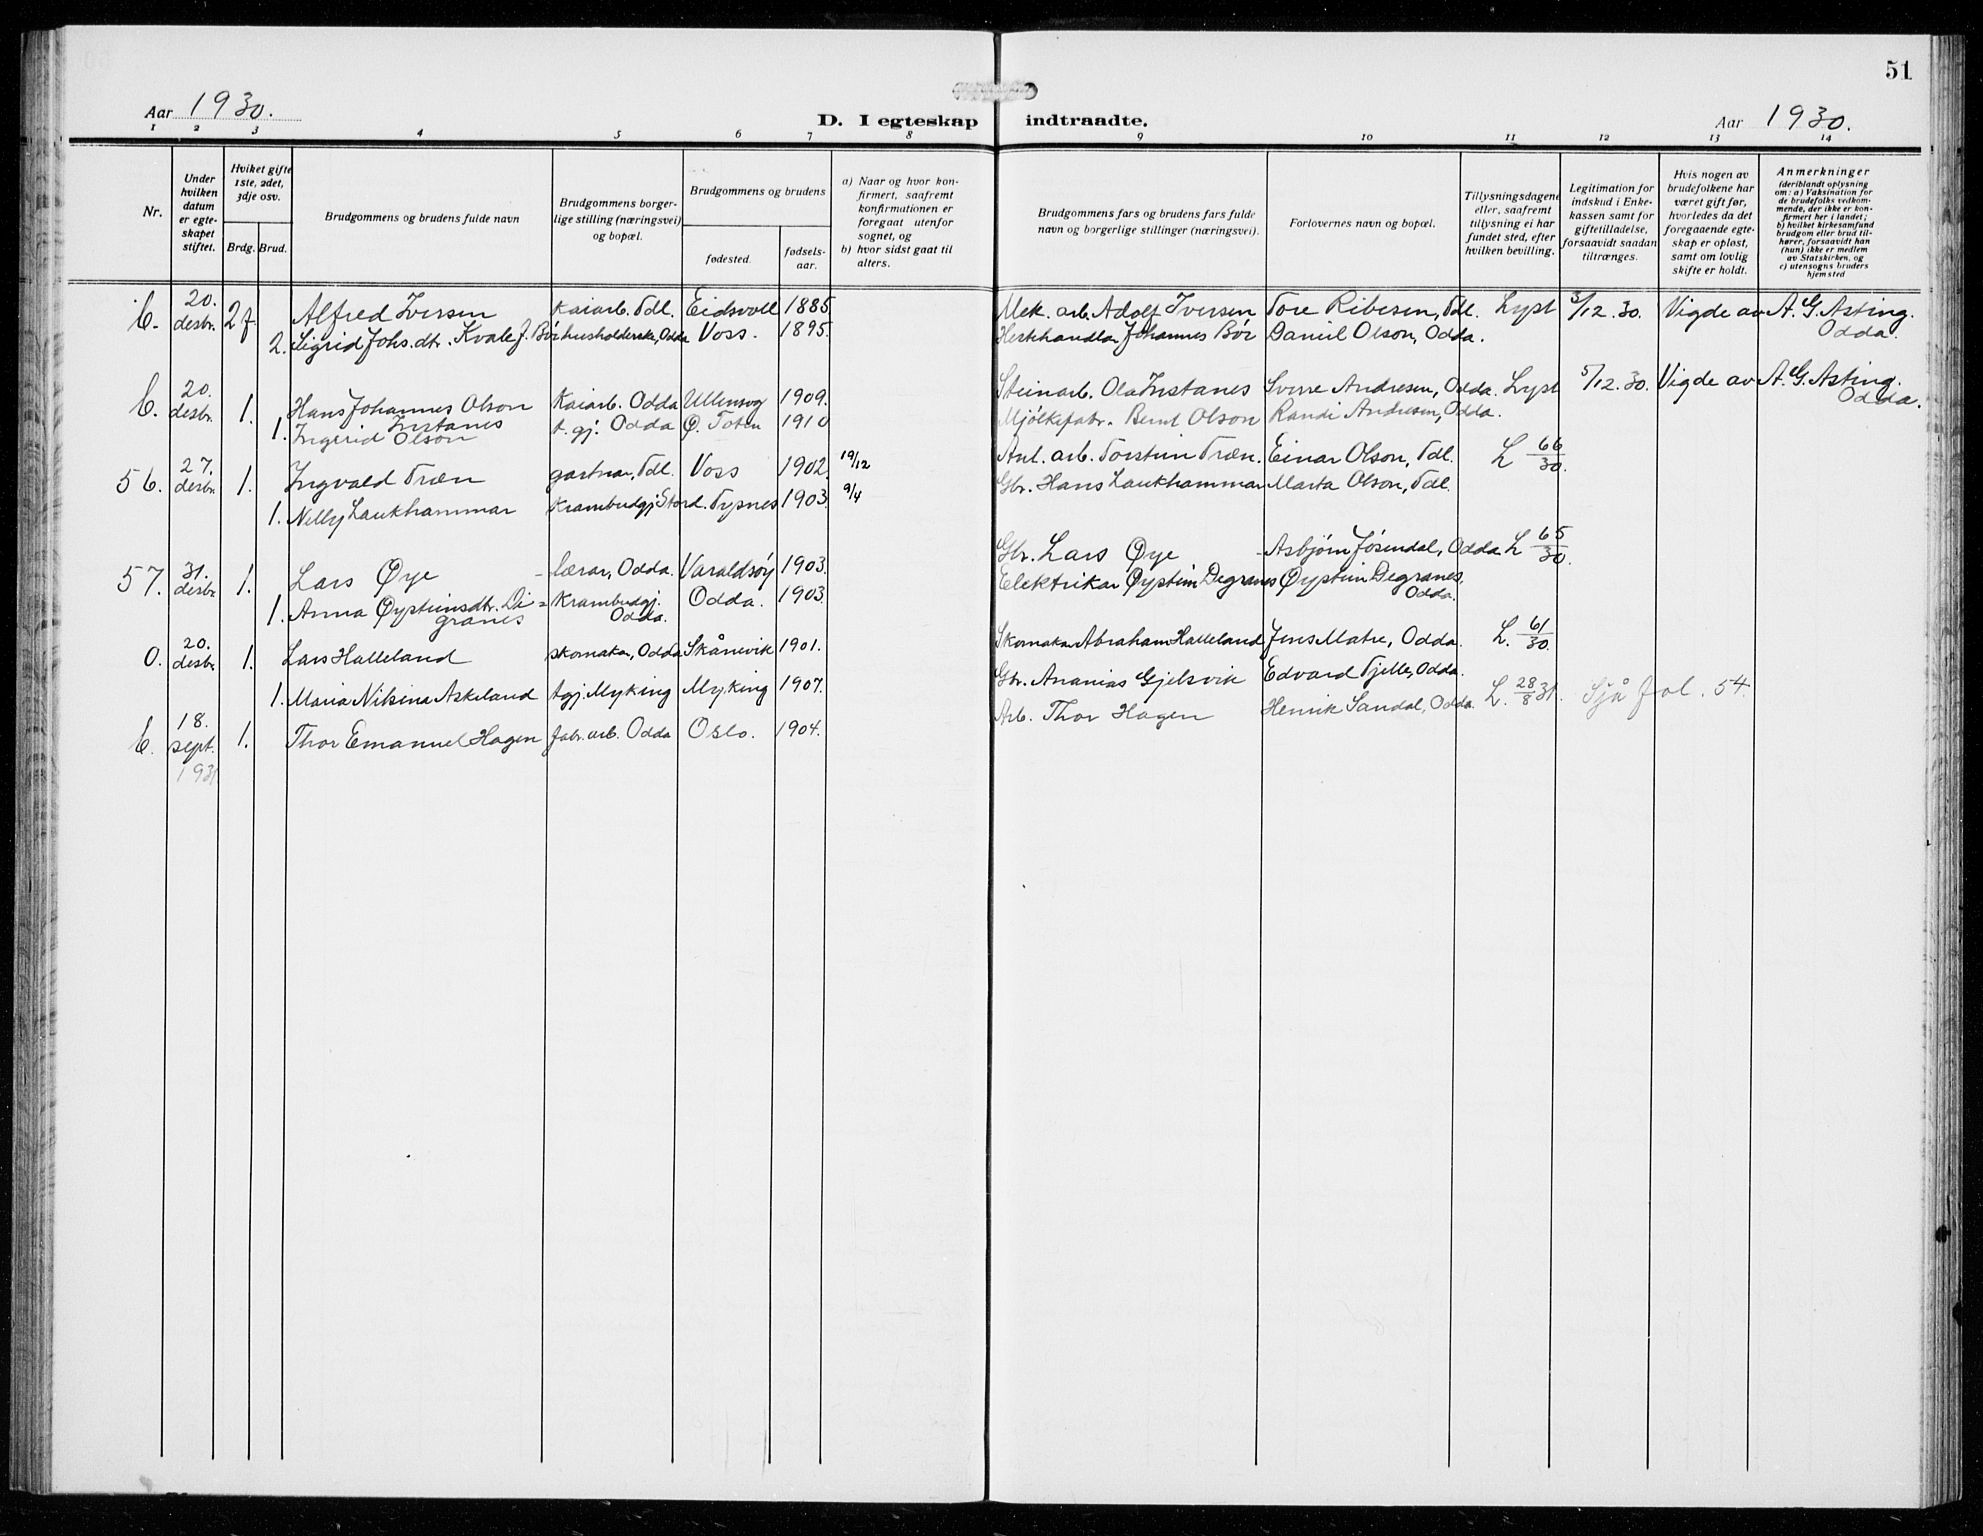 51
Aar 1930.
D. I egteskap indtraadte.
Aar 1930.
1 2 3 4 5 6 7 8 9 10 11 12 13 14
Nr.
Under hvilken datum er egteskapet stiftet.
Hviket gifte 1ste, 2det, 3dje osv.
Brdg. Brud.
Brudgommens og brudens fulde navn
Brudgommens borgerlige stilling (næringsvei) og bopæl.
Brudgommens og brudens
fødested.
fødselsaar.
a) Naar og hvor konfirmert, saafremt konfirmationen er foregaat utenfor sognet, og
b) hvor sidst gaat til alters.
Brudgommens fars og brudens fars fulde navn og borgerlige stillinger (næringsvei).
Forlovernes navn og bopæl.
Tillysningsdagene eller, saafremt tillysning ei har fundet sted, efter hvilken bevilling.
Legitimation for indskud i Enkekassen samt for giftetilladelse, forsaavidt saadan tiltrænges.
Hvis nogen av brudefolkene har været gift før, hvorledes da det foregaaende egteskap er opløst, samt om lovlig skifte er holdt.
Anmerkninger
(deriblandt oplysning om: a) Vaksination for de brudefolks vedkommende, der ikke er konfirmert her i landet; b) hvilket kirkesamfund brudgom eller brud tilhører, forsaavidt han (hun) ikke er medlem av Statskirken, og c) utensogns bruders hjemsted
20. desbr. 2f Alfred Iversen Kaiarb. Tdl. Eidsvoll 1885. Mek. arb. Adolf Iversen Tore Ribesen, Tdl. Lyst 3/12.30. Vigde av A. G. Asting. Odda.
2. Sigrid Johs.dtr. Kvale f. Bør husholderske, Odda Voss. 1895. Hestehandlar Johannes Bør Daniel Olson, Odda.
20. desbr. 1. Hans Johannes Olson Instanes Kaiarb. Odda Ullensvog 1909. Steinarb. Ola Instanes Sverre Andresen, Odda. Lyst 5/12.30. Vigde av A. G. Asting. Odda.
1. Ingerid Olson t. gj. Odda Ø. Toten 1910 Mjølkefabr. Bernt Olson Randi Andresen, Odda.
56. 27. desbr. 1. Ingvald Træn gartnar, Tdl. Voss 1902. 19/12 Anl. arb. Torstein Træn. Einar Olson, Tdl. L 66/30.
1. Nelly Laukhammar Krambudgj. Stord. Tysnes 1903. 9/4 Gbr. Hans Laukhammar Marta Olson, Tdl.
57. 31. desbr. 1. Lars Øye lærar, Odda. Varaldsøy 1903. Gbr. Lars Øye Asbjørn Jøsendal, Odda L 65/30.
1. Anna Øysteinsdtr. Digranes Krambudgj. Odda. Odda. 1903. Elektrikar Øystein Degranes Øystein Degranes, Odda.
0. 20. desbr. 1. Lars Halleland skomakar, Odda Skånevik 1901. Skomakar Abraham Halleland Jens Matre, Odda. L. 61/30.
1. Maria Nilsina Askeland tgj. Myking Myking 1907. Gbr. Ananias Gjelsvik Edvard Tjelle, Odda.
18. sept. 1931 1. Thor Emanuel Hagen fabr. arb. Odda Oslo. 1904. Arb. Thor Hagen Henrik Sandal, Odda. L. 28/8 31. Sjå fol. 54.